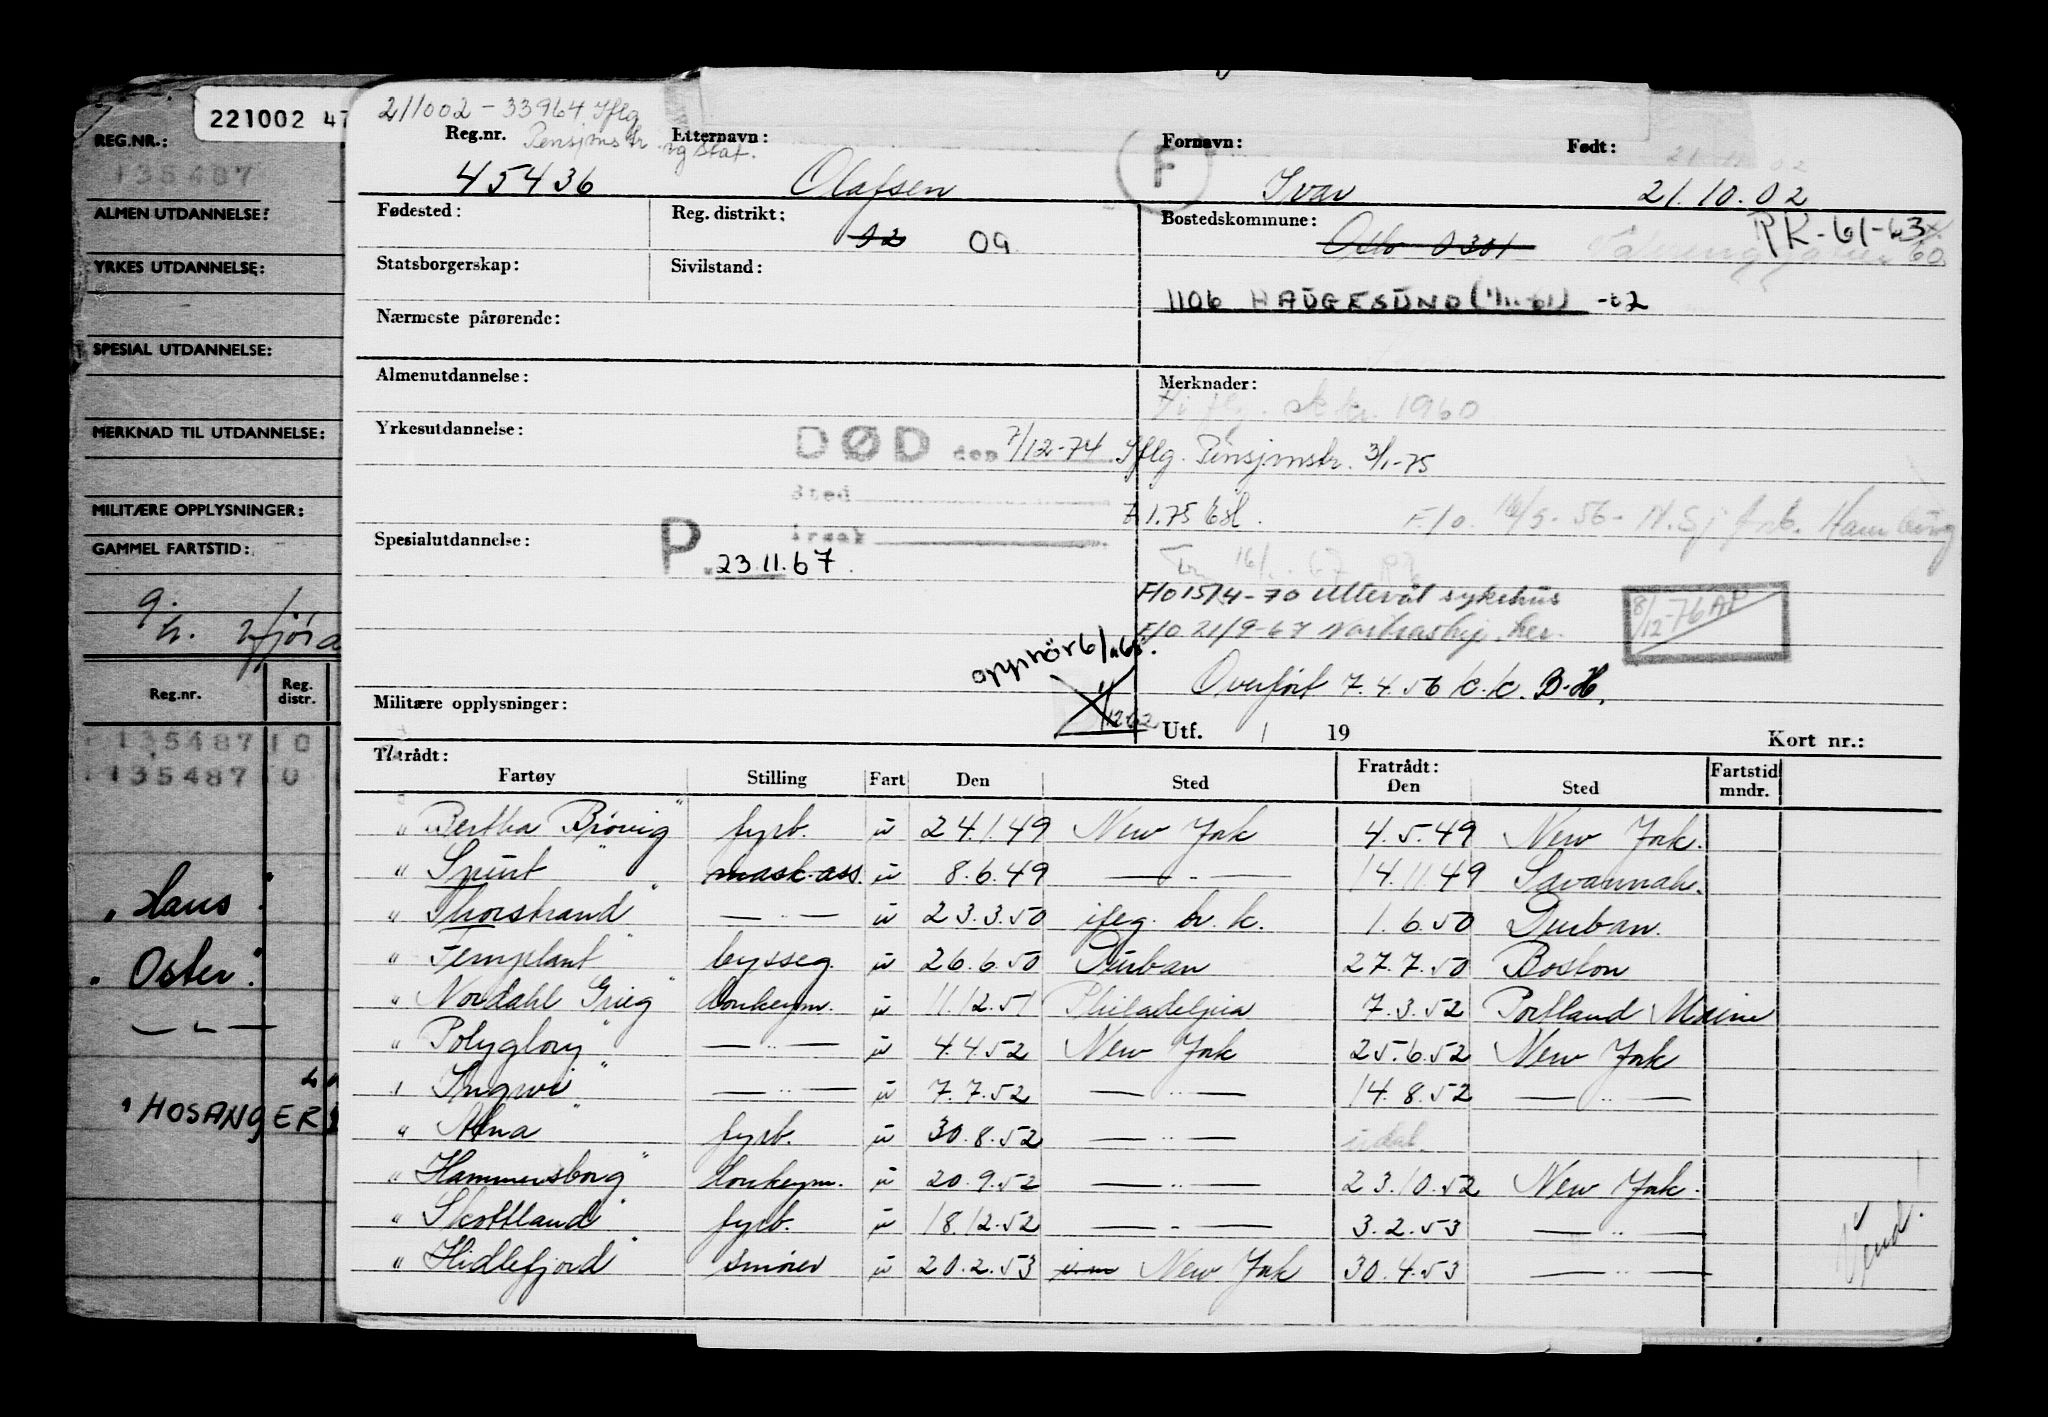 221002 47
REG.NR.:
135487
ALMEN UTDANNELSE:
YRKES UTDANNELSE:
SPESIAL UTDANNELSE:
MERKNAD TIL UTDANNELSE:
MILITÆRE OPPLYSNINGER:
GAMMEL FARTSTID:
Reg.nr. Reg. distr.
135487 10
135487 10
"Haus"
"Oster"
— " —
"HOSANGER"
211002-33964 Iflg
Pensjonstr. og Stat.
Reg.nr. Etternavn: Fornavn: Født:
45436 Olafsen F Ivar 21.10.02
Fødested: Reg. distrikt: Bostedskommune:
12 09 Oslo 0301 RK-61-63
Statsborgerskap: Sivilstand:
1106 HAUGESUND (1/11-61) -62
Nærmeste pårørende:
Almenutdannelse: Merknader:
1960
Yrkesutdannelse:
DØD den 7/12-74 Iflg. Pensjonstr. 3/1-75
Sted
Årsak
F/o. 16/5-56- N.Sj. Hamburg
Spesialutdannelse: P. 23.11.67.
F/o 15/4-70 Ullevål sykehus
F/o 21/9-67 Nortraship
8/12-76 AP
opphør 6/
Overført 7.4.56 k.k. B-H.
Militære opplysninger:
Utf. / 19 Kort nr.:
Tiltrådt: Fratrådt:
Fartøy Stilling Fart Den Sted Den Sted Fartstid mndr.
"Bertha Brøvig" fyrb. u 24.1.49 New York 4.5.49 New York.
"Spint" mask.ass. u 8.6.49 — " — 14.11.49 Savannah.
"Thorstrand" — " — u 23.3.50 ifølg. hv. k. 1.6.50 Durban.
"Templant" bysseg. u 26.6.50 Durban 27.7.50 Boston
"Nordahl Grieg" donkeym. u 11.12.51 Philadelphia 7.3.52 Portland Maine
"Polyglory" — " — u 4.4.52 New York 25.6.52 New York
"Ingwi" — " — u 7.7.52 — " — 14.8.52 — " —
"Alna" fyrb. u 30.8.52 — " —
"Hammersborg" donkeym. u 20.9.52 — " — 23.10.52 New York.
"Skottland" fyrb. u 18.12.52 — " — 3.2.53 — " —
"Hidlefjord" smører u 20.2.53 New York 30.4.53 — " —
Vend!